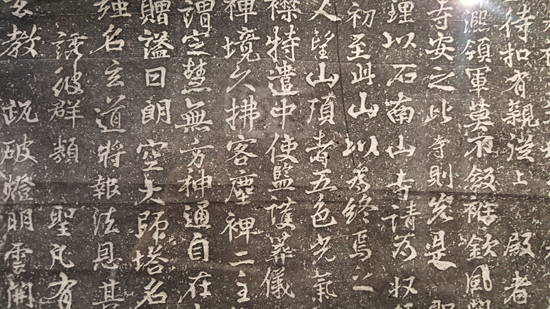 待扣有親從上殿者
領軍莫不斂袵欽風
寺安之此寺則是
理以石南山寺請為收
初至此山以為終焉之
人望山頂者五色光氣
襟特遣中使監護葬儀
禪境久拂客塵裨二主
謂定慧無方神通自在
贈謚曰朗空大師塔名
强名玄道將報法恩其
誘彼群類 聖凡有
玄教 瓶破燈明雲開